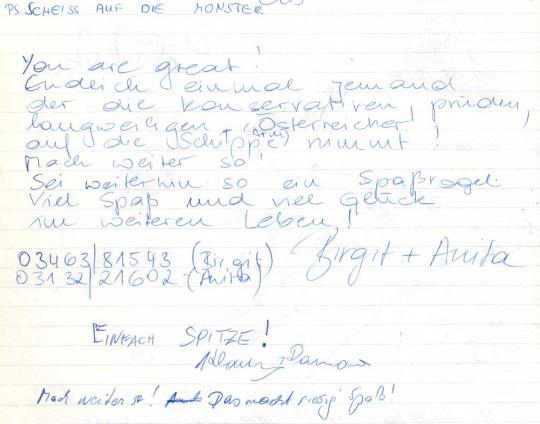 PS. SCHEISS AUF DIE MONSTER
You are great!
Endlich einmal jemand
der die konservativen, prüden,
langweiligen + Österreicher
auf die Schippe (Arm) nimmt!
Mach weiter so!
Sei weiterhin so ein Spaßvogel
Viel Spaß und viel Glück
im weiteren Leben!
03463/81543 (Birgit) Birgit + Anita
03132/21602 (Anita)
EINFACH SPITZE!
Mach weiter so! Das macht riesig Spaß!